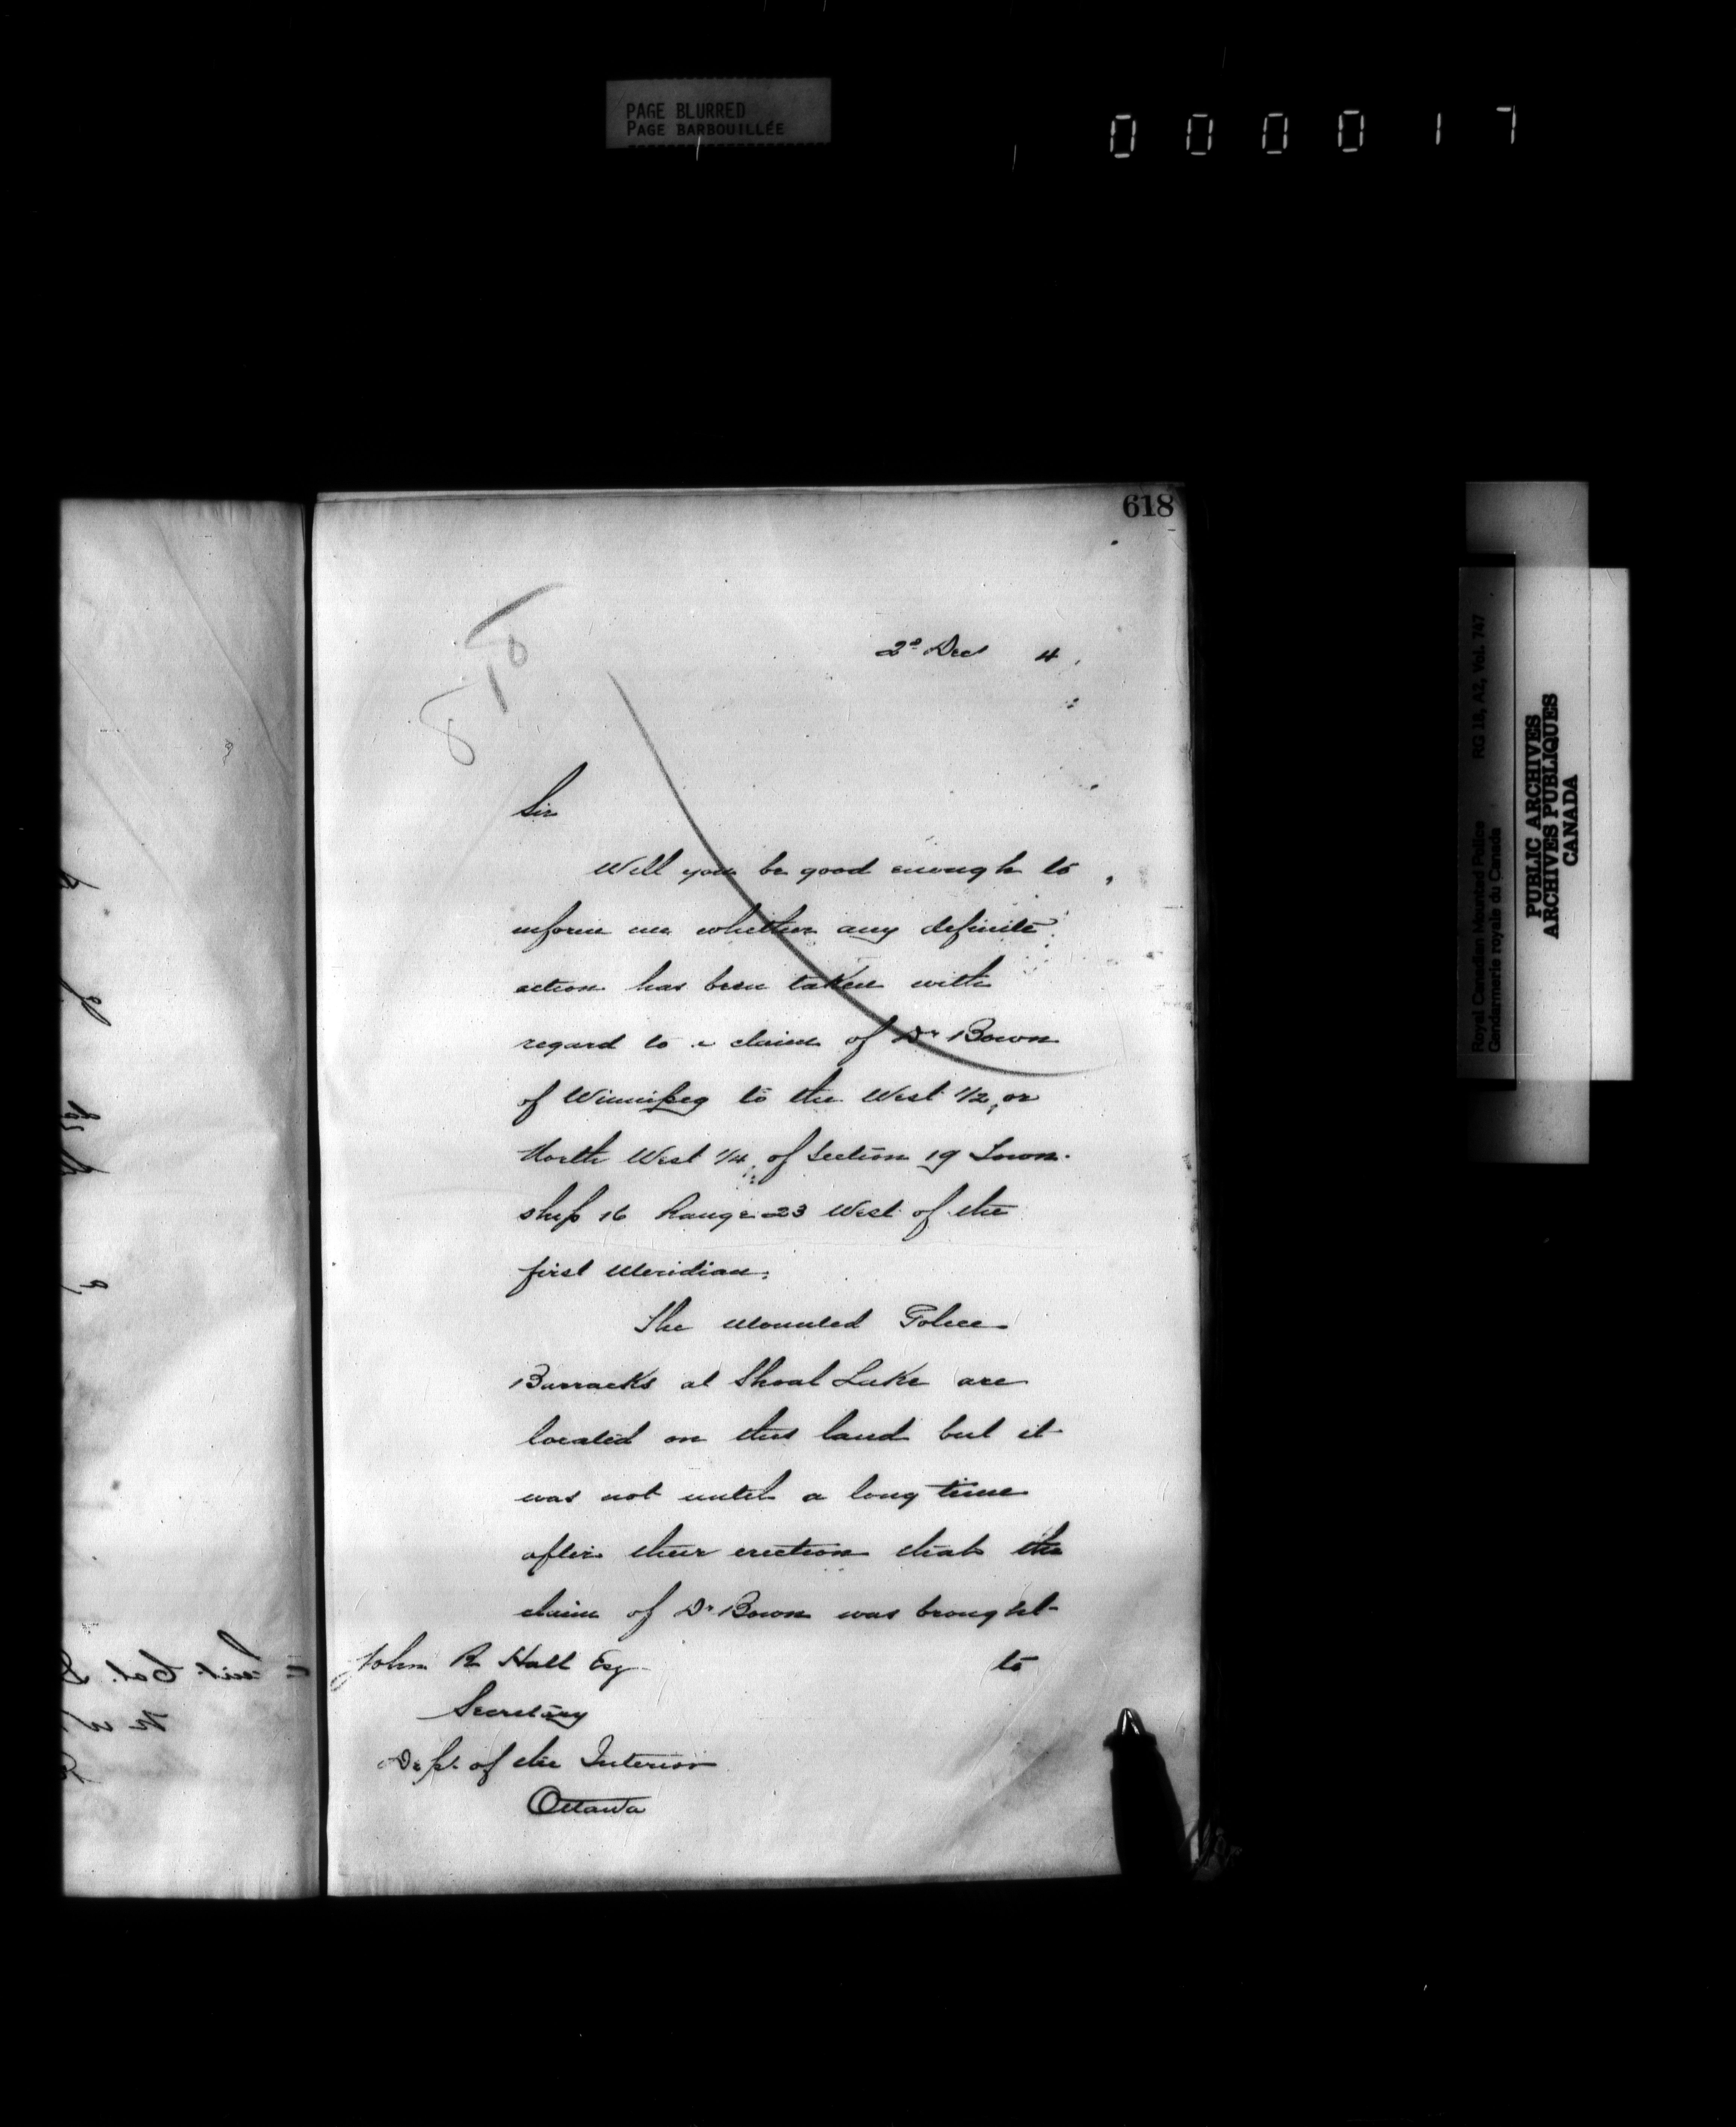 PAGE BLURRED
PAGE BARBOUILLÉE
000017
618
2d Dec 4
Sir
Will you be good enough to
inform me whether any definite
action has been taken with
regard to a claim of Dr Bown
of Winnipeg to the West 1/2, or
North West 1/4 of Section 19 Town-
ship 16 Range 23 West of the
first Meridian.
The Mounted Police
Barracks at Shoal Lake are
located on this land but it
was not until a long time
after their erection that the
claim of Dr Bown was brought
to
John R Hall Esq
Secretary
Dept. of the Interior
Ottawa
Royal Canadian Mounted Police RG 18, A2, Vol. 747
Gendarmerie royale du Canada
PUBLIC ARCHIVES
ARCHIVES PUBLIQUES
CANADA